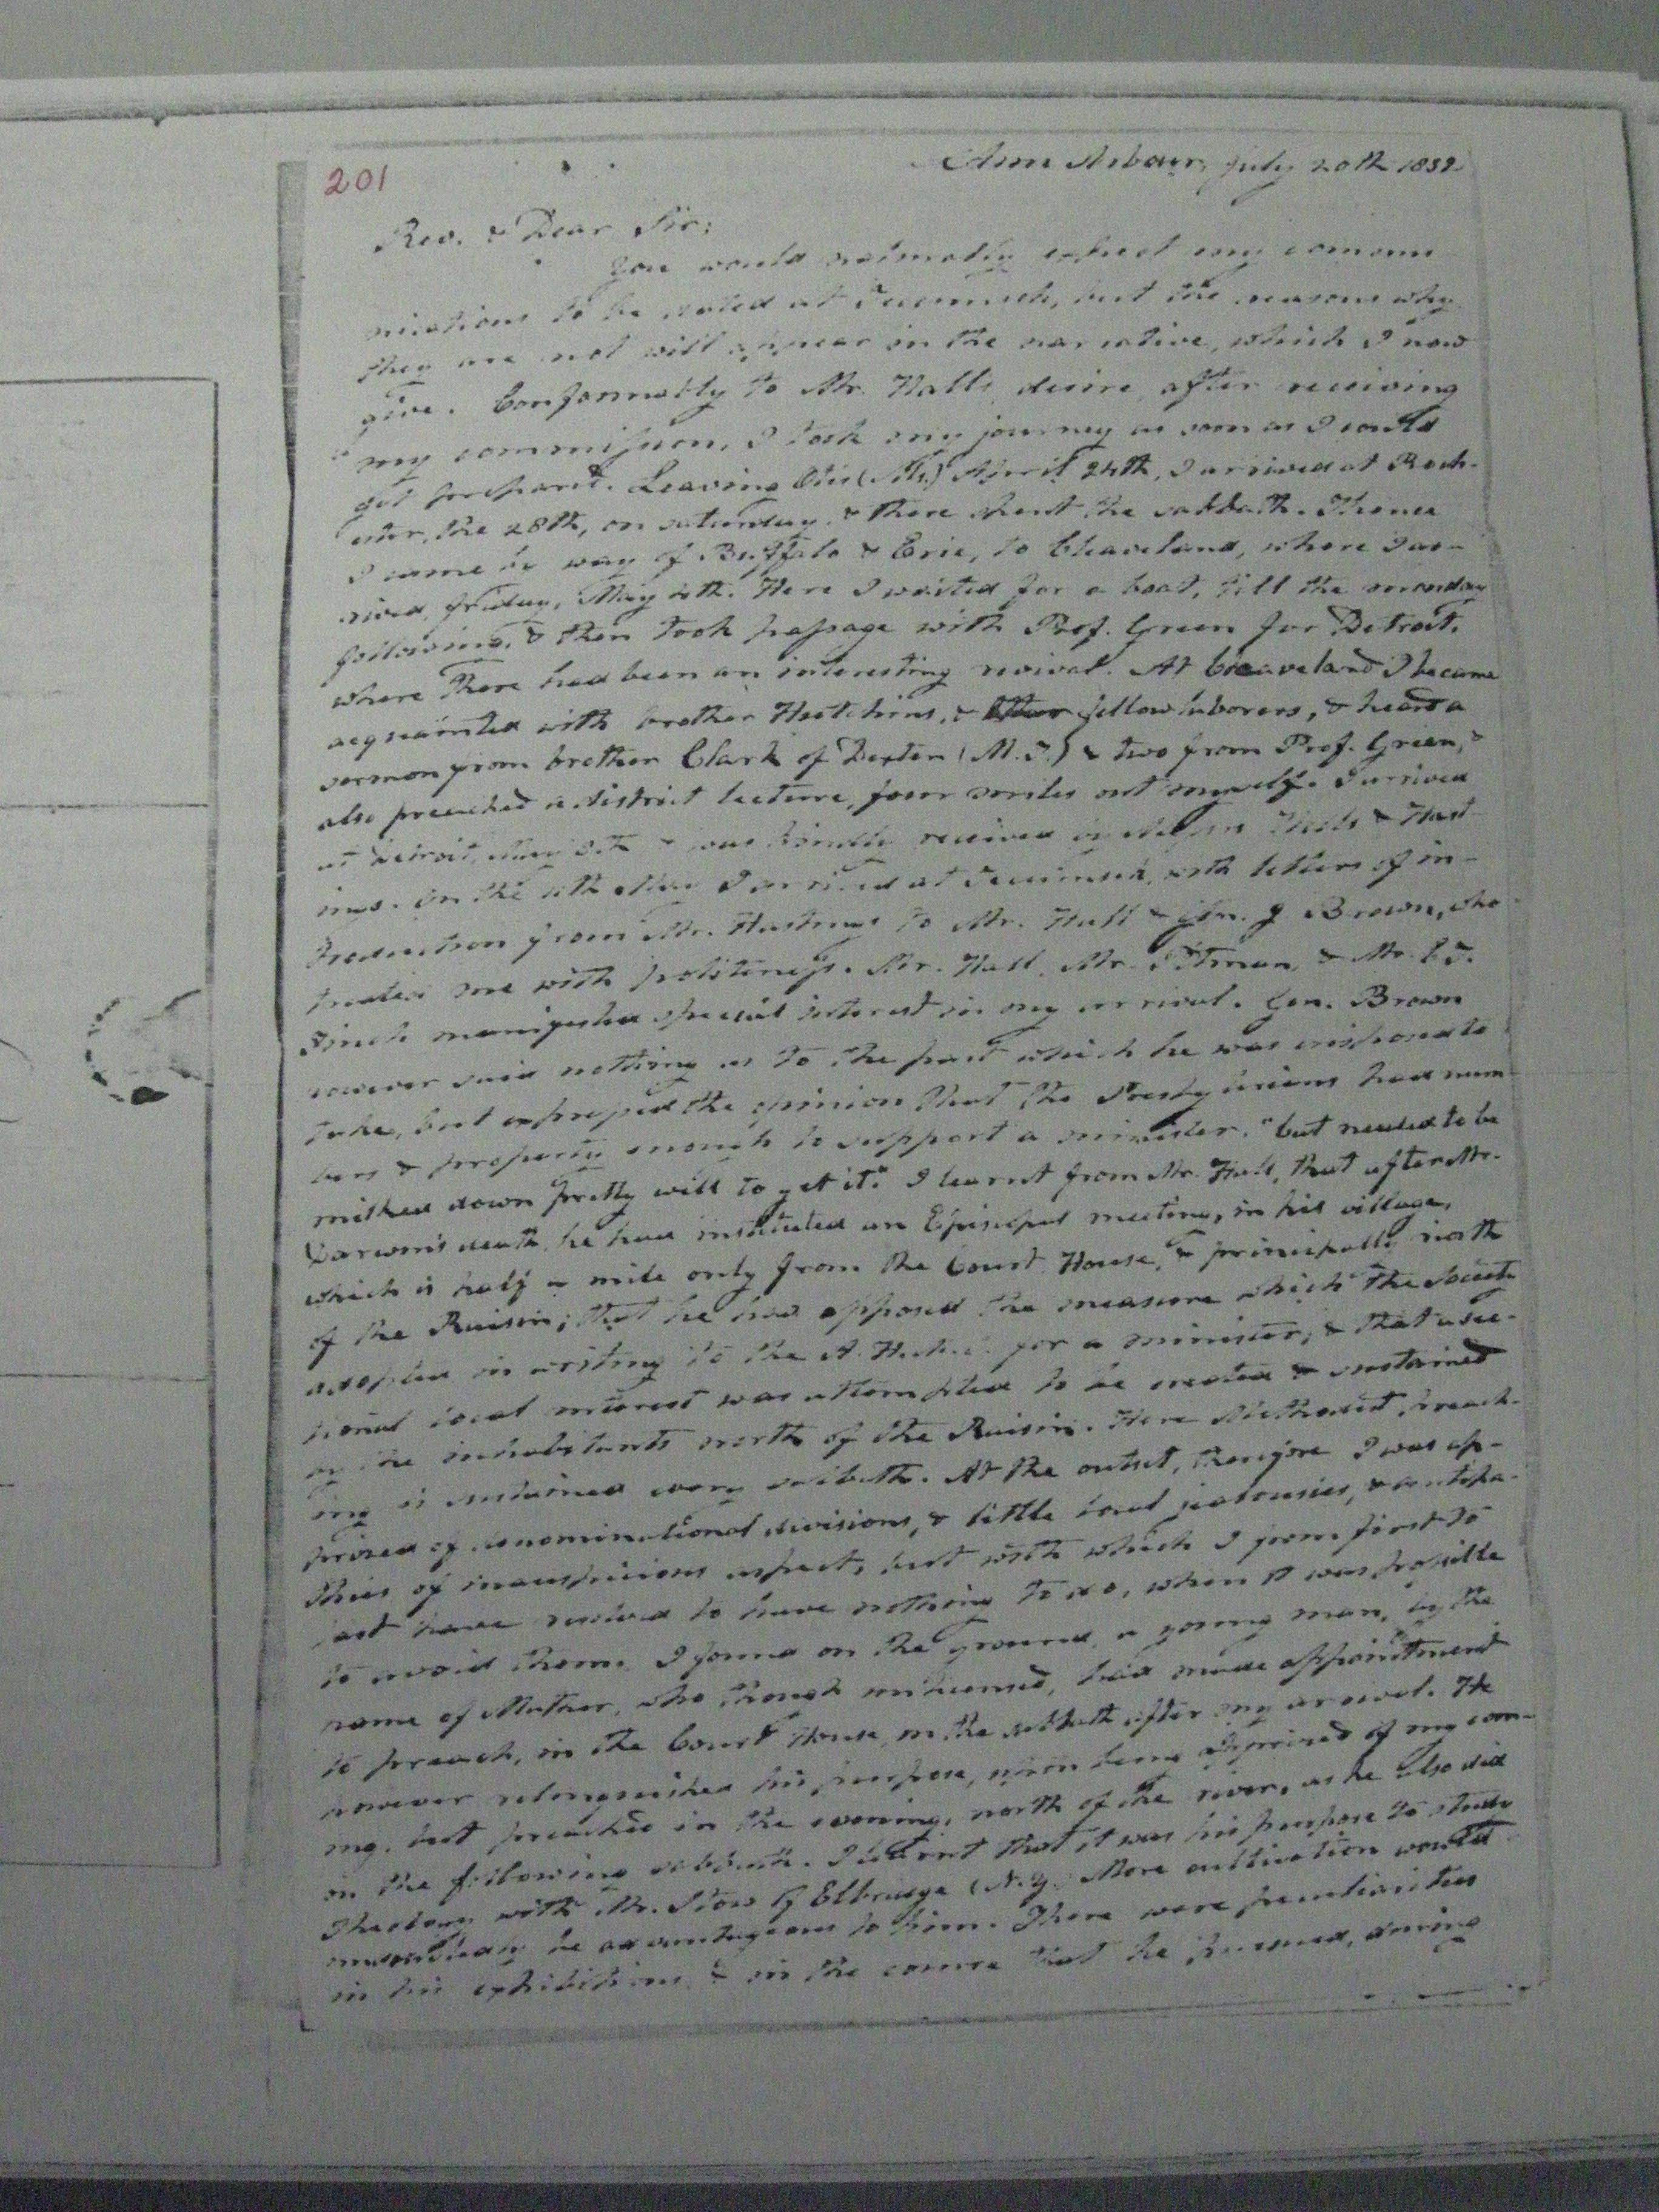 201
Ann Arbour, July 20th 1832
Rev. & Dear Sir;
You would naturally expect my commu
nications to be dated at Tecumseh, but the reasons why
they are not will appear in the narrative, which I now
give. Conformably to Mr. Hall's desire, after receiving
my commission, I took my journey as soon as I could
get prepared. Leaving Otis (Ms.) April 24th, I arrived at Roch-
ester, the 28th, on saturday, & there spent the sabbath. Thence
I came by way of Buffalo & Erie, to Cleaveland, where I ar-
rived, friday, May 4th. Here I waited for a boat, till the monday
following, & then took passage with Prof. Green for Detroit,
where there had been an interesting revival. At Cleaveland I became
acquainted with brother Hutchins, & fellow laborers, & heard a
sermon from brother Clark of Dexter (M.T.) & two from Prof. Green, &
also preached a district lecture, four miles out myself. I arrived
at Detroit, May & was kindly received by Messrs & Hast-
ings. On the 11th May I arrived at Tecumseh, with letters of in-
troduction from Mr. Hastings to Mr. Hall & Gen. J Brown, who
treated me with politeness. Mr. Hall, Mr. & Mr.
Finch manifested special interest in my arrival. Gen. Brown
however said nothing as to the part which he was disposed to
take, but expressed the opinion that the Presbyterians had num-
bers & property enough to support a minister, "but needed to be
milked down pretty well to get it." I learnt from Mr. Hall, that after Mr.
Darwin's death, he had instituted an Episcopal meeting, in his village,
which is half a mile only from the Court House, & principally north
of the Raisin; that he had opposed the measure which the Society
adopted in writing to the A. for a minister; & that a sec-
tional local interest was attempted to be created & sustained
by the inhabitants north of the Raisin. Here Methodist preach-
ing is sustained every sabbath. At the outset, therefore I was ap-
prised of denominational divisions, & little local jealousies, & antipa-
thies of inauspicious aspect, but with which I from first to
last have resolved to have nothing to do, when it was possible
to avoid them. I found on the ground, a young man, by the
name of Mather, who though unlicensed, had made appointment
to preach, in the Court House, on the sabbath after my arrival. He
however relinquished his purpose, upon being apprised of my com-
ing, but preached in the evening, north of the river, as he also did
on the following sabbath. I learnt that it was his purpose to study
Theology with Mr. Stow of Elbridge (N.Y.) More cultivation would
undoubtedly be advantageous to him. There were peculiarities
in his exhibitions & in the course that he pursued, during